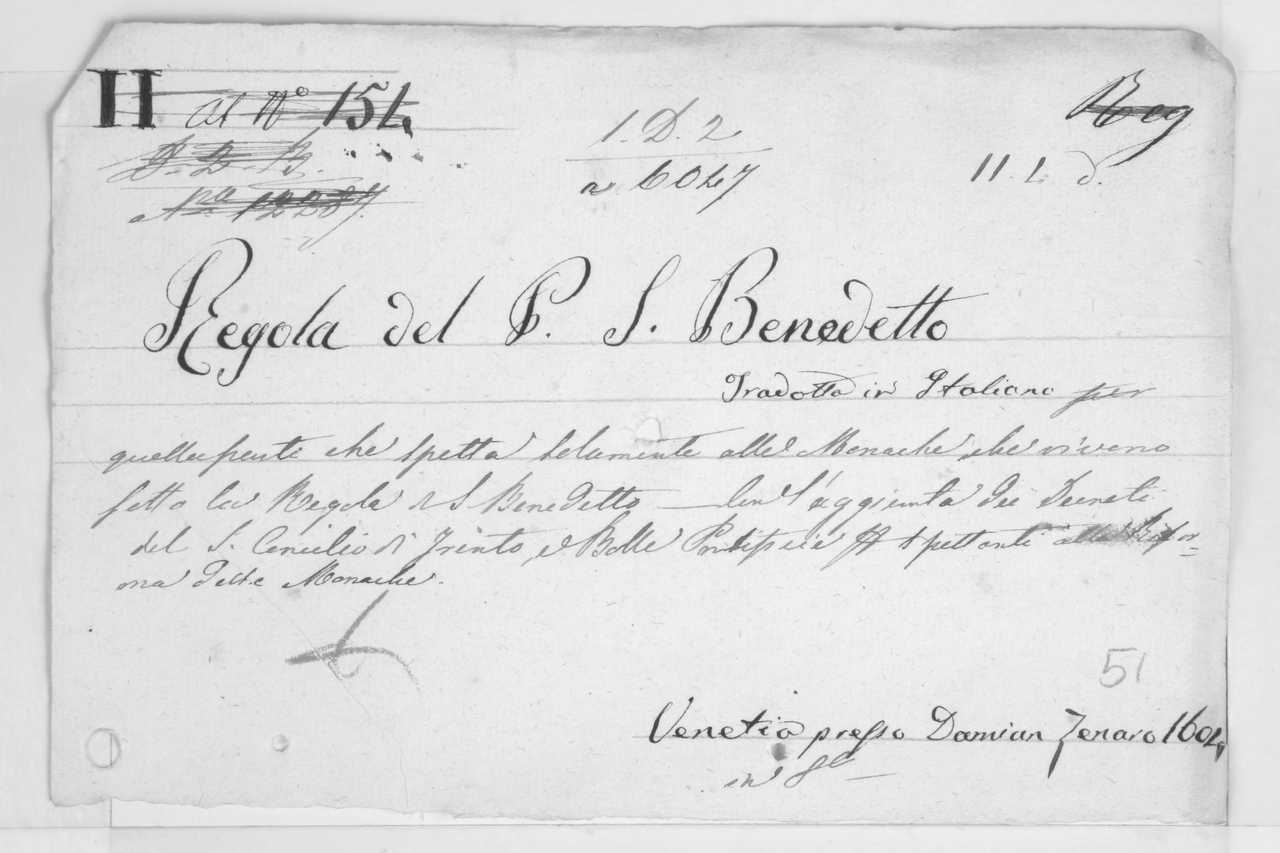 II al N° 154
Reg
1. D. 2
a 6047
II. L d.
Regola del P. S. Benedetto
Tradotta in Italiano per
quella parte che spetta solamente alle Monache che vivono
sotto la Regola di S Benedetto — Con l'aggiunta dei Decreti
del S. Concilio di Trento, e Bolle Pontificie spettanti alla Rifor-
ma delle Monache.
51
Venetia presso Damian Zenaro 1604
in 8°